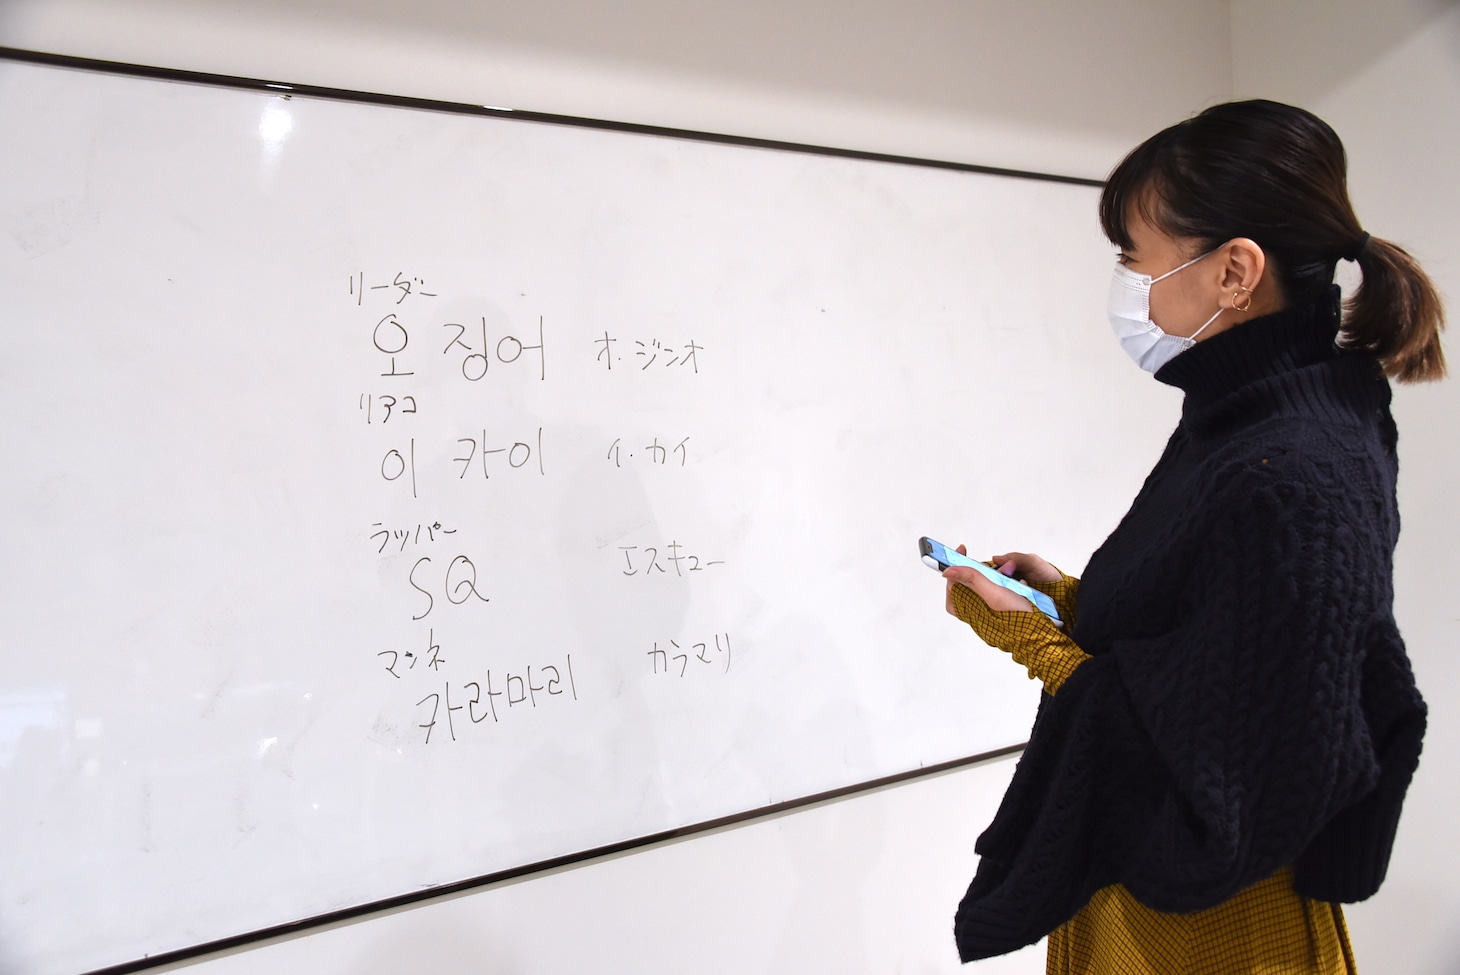 リーダー
오 징어 オ・ジンオ
リアコ
이 카이 イ・カイ
ラッパー
SQ エスキュー
マンネ
카라마리 カラマリ